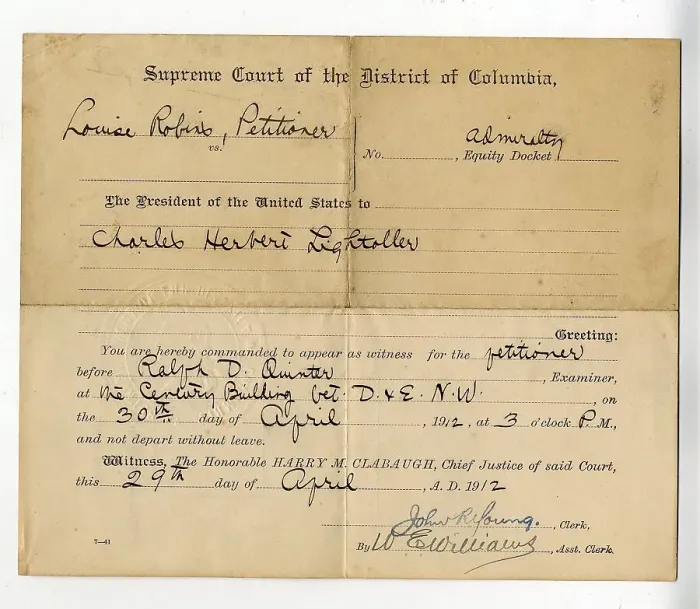 Supreme Court of the District of Columbia,
Louise Robins, Petitioner
vs.
Admiralty
No. , Equity Docket
The President of the United States to
Charles Herbert Lightoller
Greeting:
You are hereby commanded to appear as witness for the petitioner
before Ralph D. Quinter , Examiner,
at the Century Building bet. D & E. N.W. , on
the 30th day of April , 1912, at 3 o'clock P. M.,
and not depart without leave.
Witness, The Honorable HARRY M. CLABAUGH, Chief Justice of said Court,
this 29th day of April , A. D. 1912
John R. Young. , Clerk,
By W E Williams , Asst. Clerk.
7—41